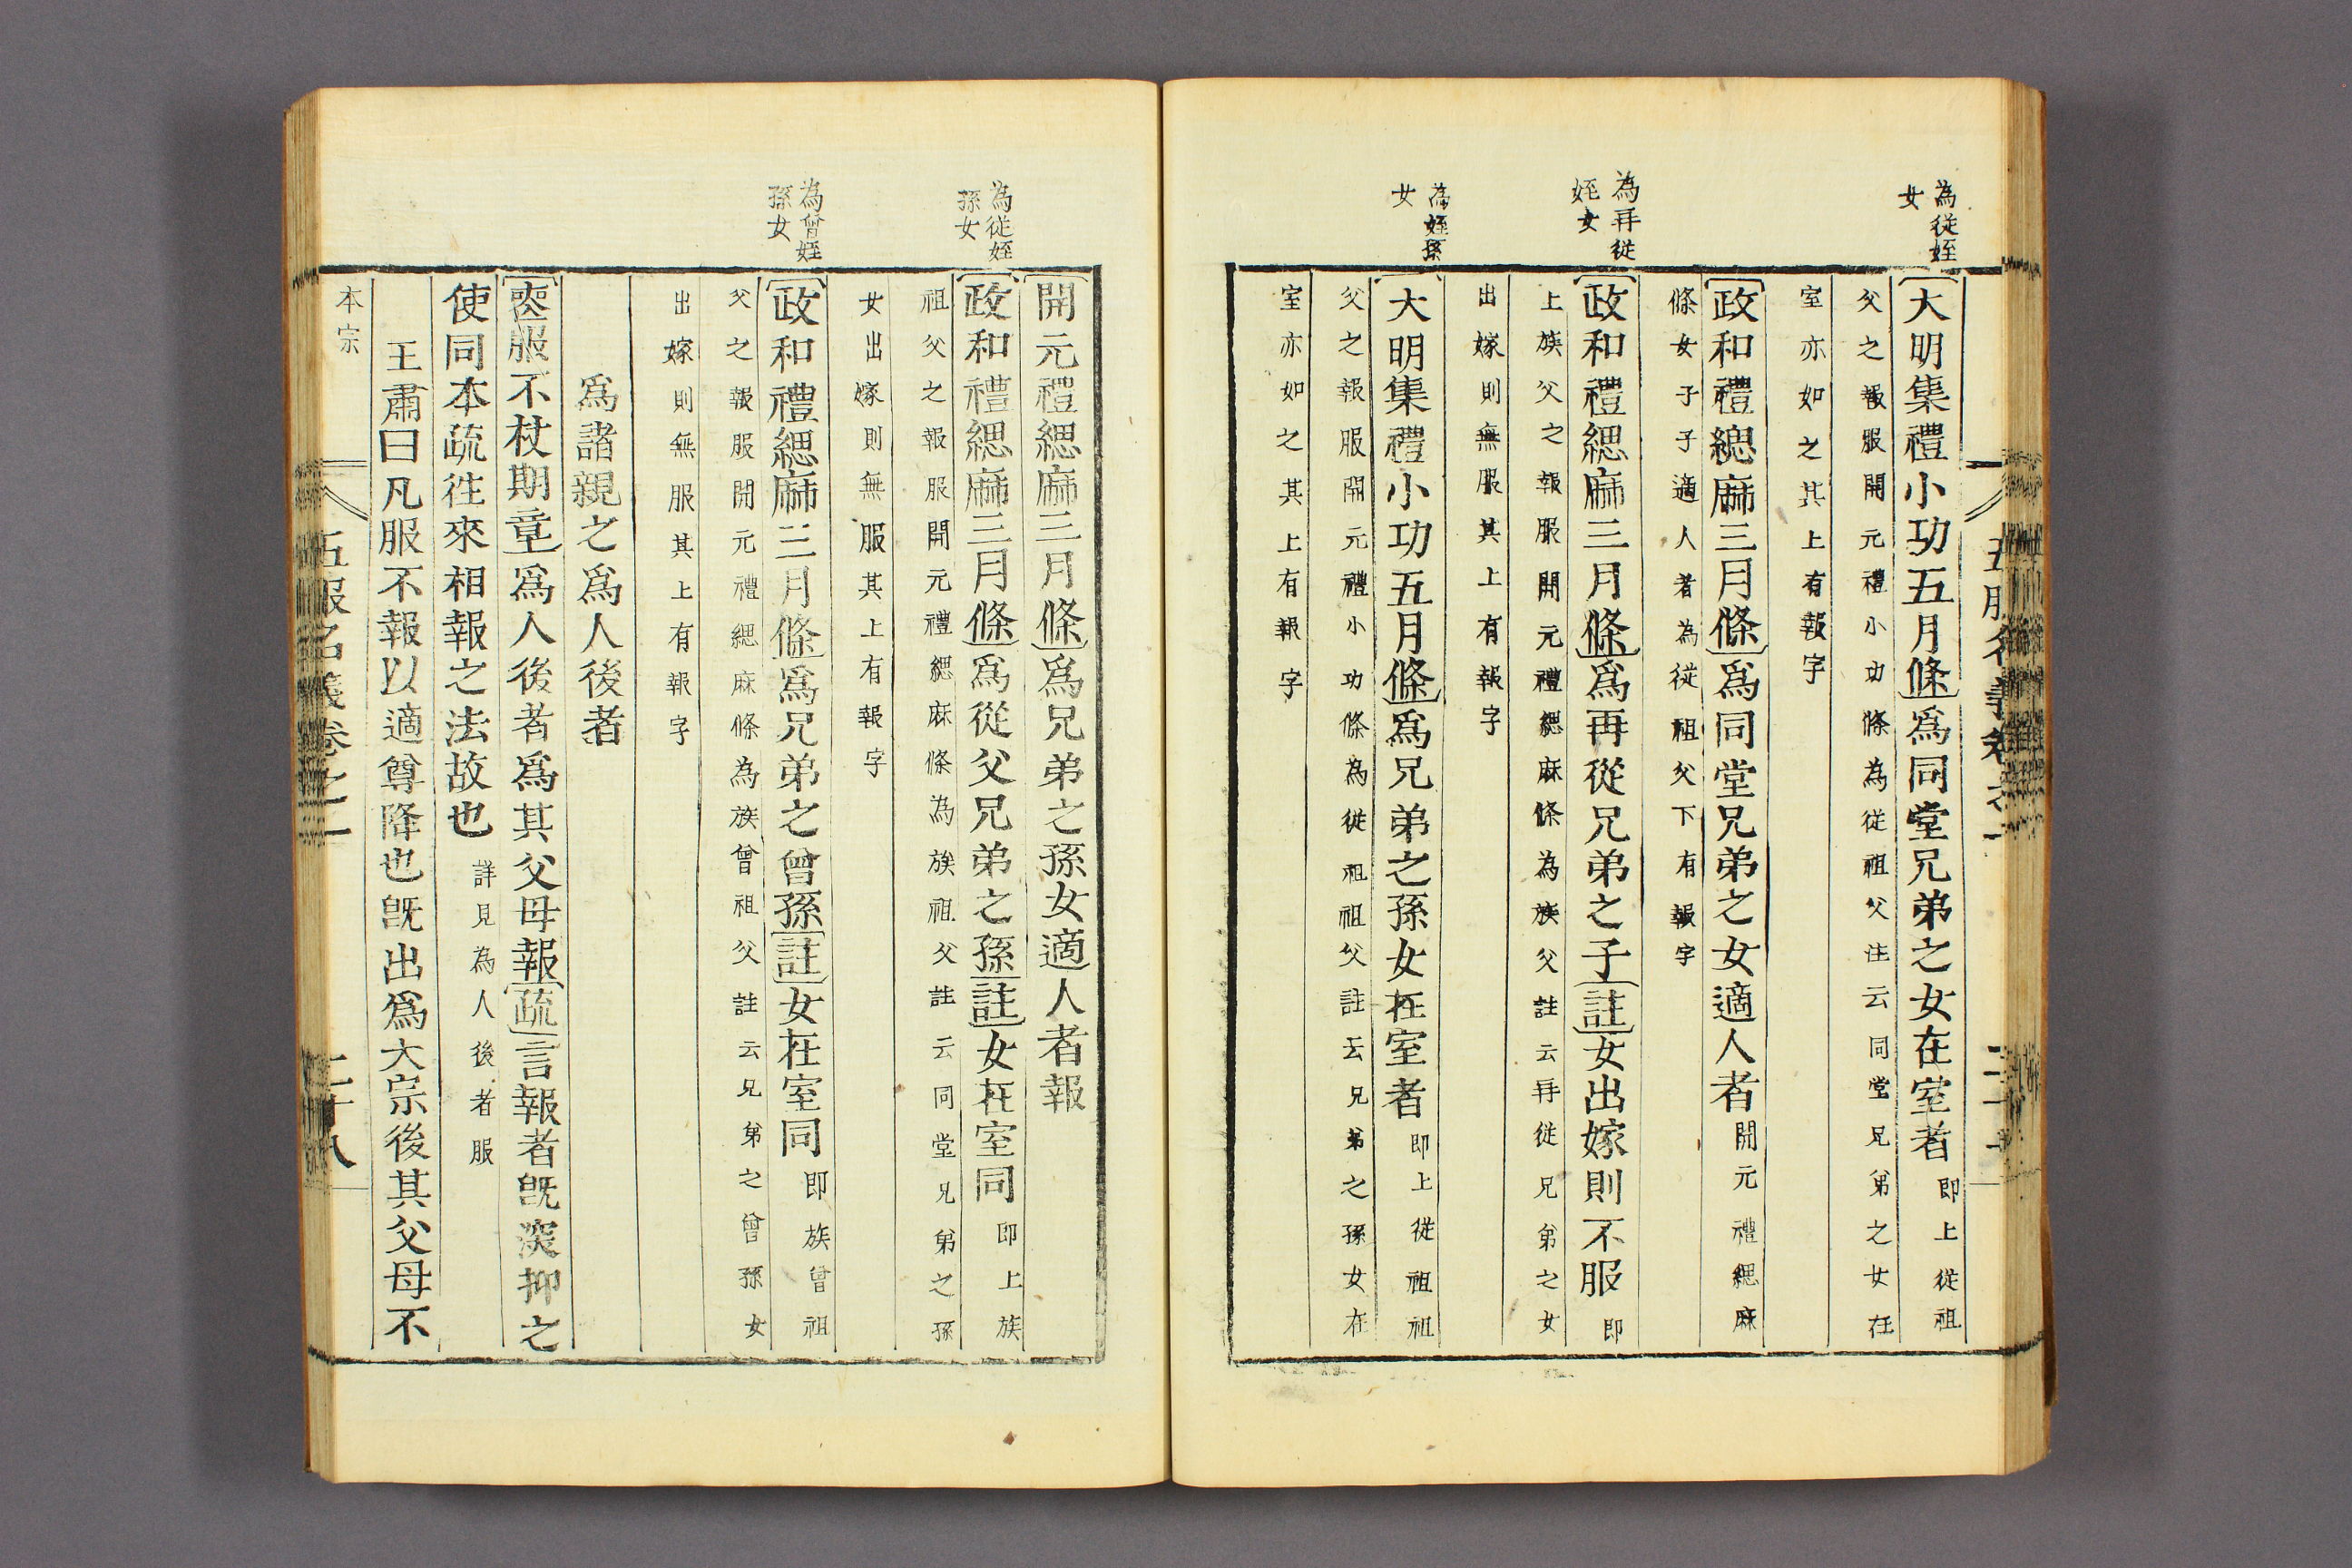 為從姪
女
大明集禮小功五月條爲同堂兄弟之女在室者即上從祖
父之報服開元禮小功條為從祖父注云同堂兄弟之女在
室亦如之其上有報字
政和禮緦麻三月條爲同堂兄弟之女適人者開元禮緦麻
條女子子適人者為從祖父下有報字
為再從
姪女
政和禮緦麻三月條爲再從兄弟之子註女出嫁則不服即
上族父之報服開元禮緦麻條為族父註云再從兄弟之女
出嫁則無服其上有報字
為姪孫
女
大明集禮小功五月條爲兄弟之孫女在室者即上從祖祖
父之報服開元禮小功條為從祖祖父註云兄弟之孫女在
室亦如之其上有報字
開元禮緦麻三月條爲兄弟之孫女適人者報
為從姪
孫女
政和禮緦麻三月條爲從父兄弟之孫註女在室同即上族
祖父之報服開元禮緦麻條為族祖父註云同堂兄弟之孫
女出嫁則無服其上有報字
為曾姪
孫女
政和禮緦麻三月條爲兄弟之曾孫註女在室同即族曾祖
父之報服開元禮緦麻條為族曾祖父註云兄弟之曾孫女
出嫁則無服其上有報字
爲諸親之爲人後者
喪服不杖期章爲人後者爲其父母報疏言報者旣深抑之
使同本疏往來相報之法故也詳見為人後者服
王肅曰凡服不報以適尊降也旣出爲大宗後其父母不
本宗
五服名義卷之一 二十八